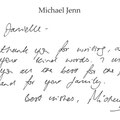 Michael Jenn
Danielle -
Thank you for writing, and
your kind words. I wish
you all the best for the
and for your family.
Best wishes, Michael